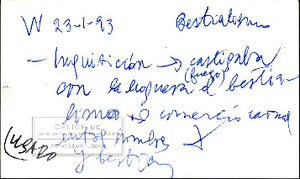 W 23-1-93 Bestialismo
- Inquisición → castigaba
(fuego)
con la hoguera el bestia
lismo → comercio carnal
entre hombre
y bestias
CELICH UC
(USADO